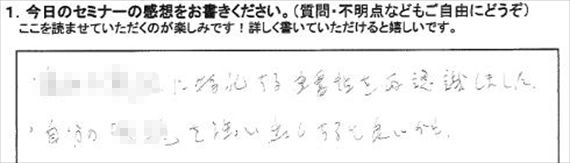 1. 今日のセミナーの感想をお書きください。（質問・不明点などもご自由にどうぞ）
ここを読ませていただくのが楽しみです！詳しく書いていただけると嬉しいです。
・に特化する重要性を再認識しました。
・自分の「」を洗い出しすると良いかも。